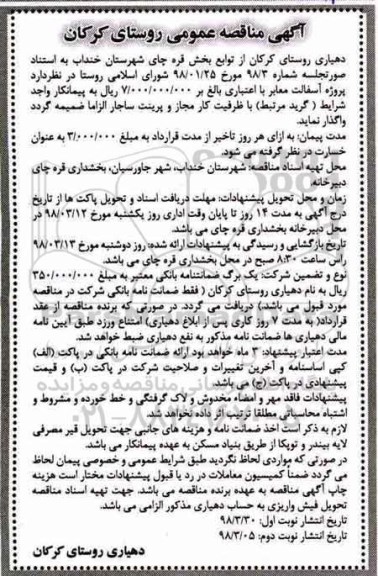 آگهی مناقصه عمومی روستای کرکان
دهیاری روستای کرکان از توابع بخش قره چای شهرستان خنداب به استناد
صورتجلسه شماره ۹۸/۳ مورخ ۹۸/۰۱/۲۵ شورای اسلامی روستا در نظردارد
پروژه آسفالت معابر با اعتباری بالغ بر ۷/۰۰۰/۰۰۰/۰۰۰ ریال به پیمانکار واجد
شرایط ( گرید مرتبط) با ظرفیت کار مجاز و پرینت ساجار الزاما ضمیمه گردد
واگذار نماید.
مدت پیمان: به ازای هر روز تاخیر از مدت قرارداد به مبلغ ۳/۰۰۰/۰۰۰ به عنوان
خسارت در نظر گرفته می شود.
محل تهیه اسناد مناقصه: شهرستان خنداب، شهر جاورسیان، بخشداری قره چای
دبیرخانه.
زمان و محل تحویل پیشنهادات: مهلت دریافت اسناد و تحویل پاکت ها از تاریخ
درج آگهی به مدت ۱۴ روز تا پایان وقت اداری روز یکشنبه مورخ ۹۸/۰۳/۱۲ در
محل دبیرخانه بخشداری قره چای می باشد.
تاریخ بازگشایی و رسیدگی به پیشنهادات ارائه شده: روز دوشنبه مورخ ۹۸/۰۳/۱۳
راس ساعت ۸:۳۰ صبح در محل بخشداری قره چای می باشد.
نوع و تضمین شرکت: یک برگ ضمانتنامه بانکی معتبر به مبلغ ۳۵۰/۰۰۰/۰۰۰
ریال به نام دهیاری روستای کرکان ( فقط ضمانت نامه بانکی شرکت در مناقصه
مورد قبول می باشد) دریافت می گردد. در صورتی که برنده مناقصه از عقد
قرارداد( به مدت ۷ روز کاری پس از ابلاغ دهیاری) امتناع ورزد طبق آیین نامه
مالی دهیاری ها ضمانت نامه مذکور به نفع دهیاری ضبط خواهد شد.
مدت اعتبار پیشنهاد: ۳ ماه خواهد بود ارائه ضمانت نامه بانکی در پاکت (الف)
کپی اساسنامه و آخرین تغییرات و صلاحیت شرکت در پاکت (ب) و قیمت
پیشنهادی در پاکت (ج) می باشد.
پیشنهادات فاقد مهر و امضاء مخدوش و لاک گرفتگی و خط خورده و مشروط و
اشتباه محاسباتی مطلقا ترتیب اثر داده نخواهد شد.
لازم به ذکر است اخذ ضمانت نامه و هزینه های جانبی جهت تحویل قیر مصرفی
لایه بیندر و توپکا از طریق بنیاد مسکن به عهده پیمانکار می باشد.
در صورتی که مواردی لحاظ نگردید طبق شرایط عمومی و خصوصی پیمان لحاظ
می گردد ضمناً کمیسیون معاملات در رد یا قبول پیشنهادات مختار است هزینه
چاپ آگهی مناقصه به عهده برنده مناقصه می باشد. جهت تهیه اسناد مناقصه
تحویل فیش واریزی به حساب دهیاری مذکور الزامی می باشد.
تاریخ انتشار نوبت اول: ۹۸/۳/۳۰
تاریخ انتشار نوبت دوم: ۹۸/۳/۰۵
دهیاری روستای کرکان